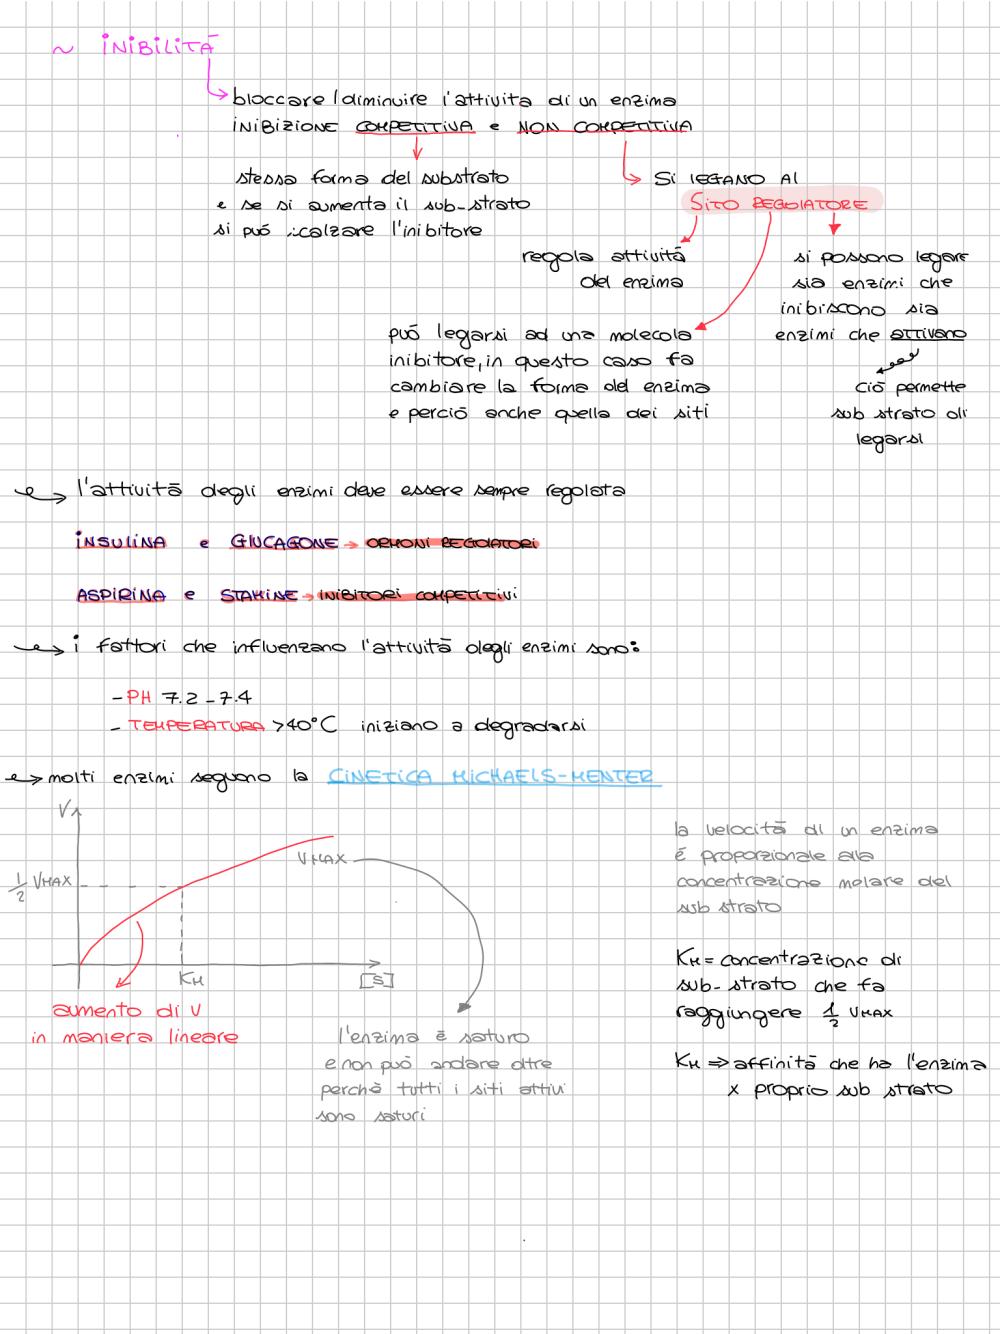 ~ INIBILITÀ
bloccare/diminuire l'attivita di un enzima
INIBIZIONE COMPETITIVA e NON COMPETITIVA
stessa forma del substrato
e se si aumenta il sub-strato
si può scalzare l'inibitore
Si LEGANO Al
SITO REGOLATORE
regola attività
del enzima
si possono legare
sia enzimi che
inibiscono sia
enzimi che attivano
ciò permette
sub strato di
legarsi
può legarsi ad una molecola
inibitore, in questo caso fa
cambiare la forma del enzima
e perciò anche quella dei siti
l'attività degli enzimi deve essere sempre regolata
INSULINA e GLUCAGONE → ORMONI REGOLATORI
ASPIRINA e STAMINE → INIBITORI COMPETITIVI
i fattori che influenzano l'attività degli enzimi sono:
- PH 7.2 - 7.4
- TEMPERATURA >40°C iniziano a degradarsi
molti enzimi seguono la CINETICA MICHAELS-MENTER
V
VMAX
1/2 VMAX
KM
[S]
aumento di V
in maniera lineare
l'enzima è saturo
e non può andare oltre
perchè tutti i siti attivi
sono saturi
la velocità di un enzima
é proporzionale alla
concentrazione molare del
sub strato
KM = concentrazione di
sub-strato che fa
raggiungere 1/2 VMAX
KM ⇒ affinità che ha l'enzima
x proprio sub strato